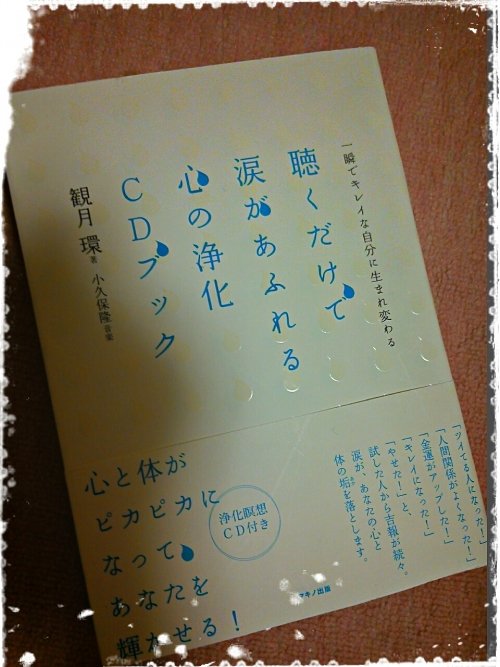 一瞬でキレイな自分に生まれ変わる
聴くだけで
涙があふれる
心の浄化
CDブック
観月 環 著
小久保隆 音楽
「ツイてる人になった!」
「人間関係がよくなった!」
「金運がアップした!」
「キレイになった!」
「やせた!」と、
試した人から吉報が続々。
涙が、あなたの心と
体の垢を落とします。
浄化瞑想
CD付き
心と体が
ピカピカに
なって、
あなたを
輝かせる!
マキノ出版